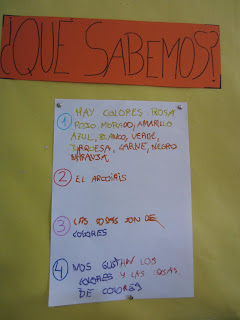 ¿QUE SABEMOS?
HAY COLORES ROSA
1 ROJO, MORADO, AMARILLO
AZUL, BLANCO, VERDE,
TURQUESA, CARNE, NEGRO
NARANJA.
2 EL ARCOIRIS
3 LAS COSAS SON DE
COLORES
4 NOS GUSTAN LOS
COLORES Y LAS COSAS
DE COLORES